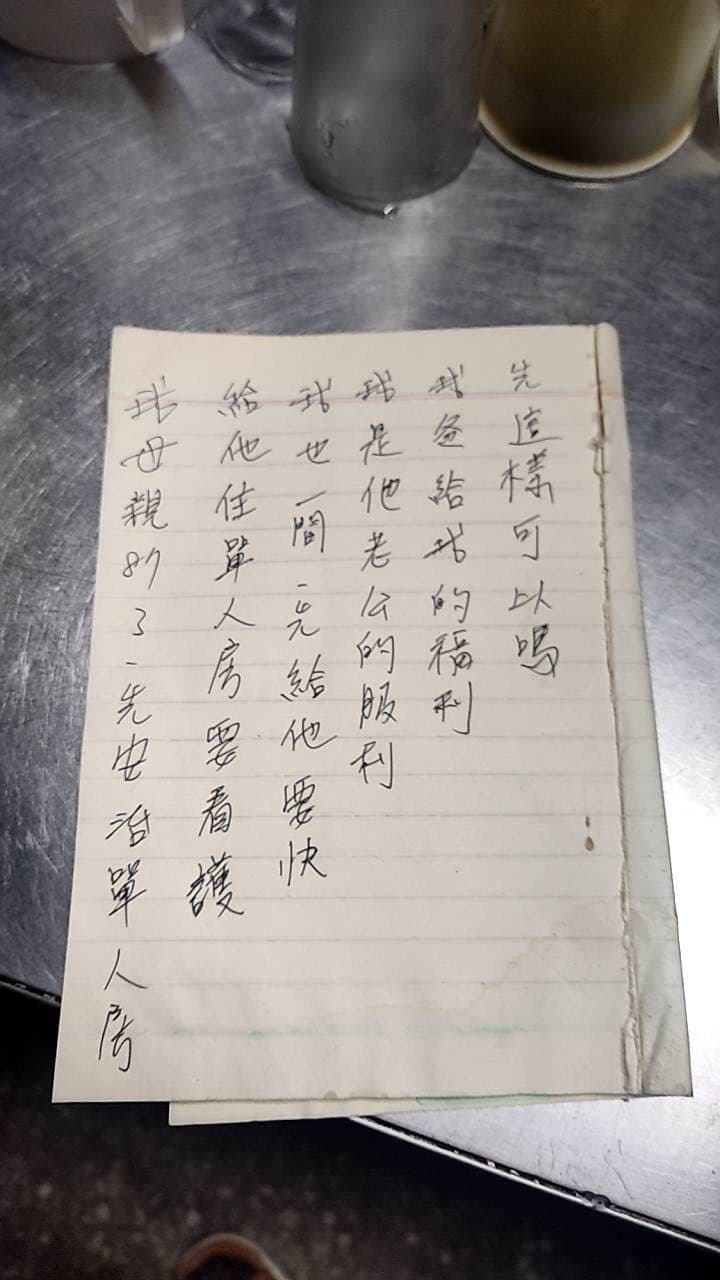 我母親87了、先安活單人房
給他住單人房要看護
我也一間、先給他要快
我是他老公的服利
我爸給我的福利
先這樣可以嗎